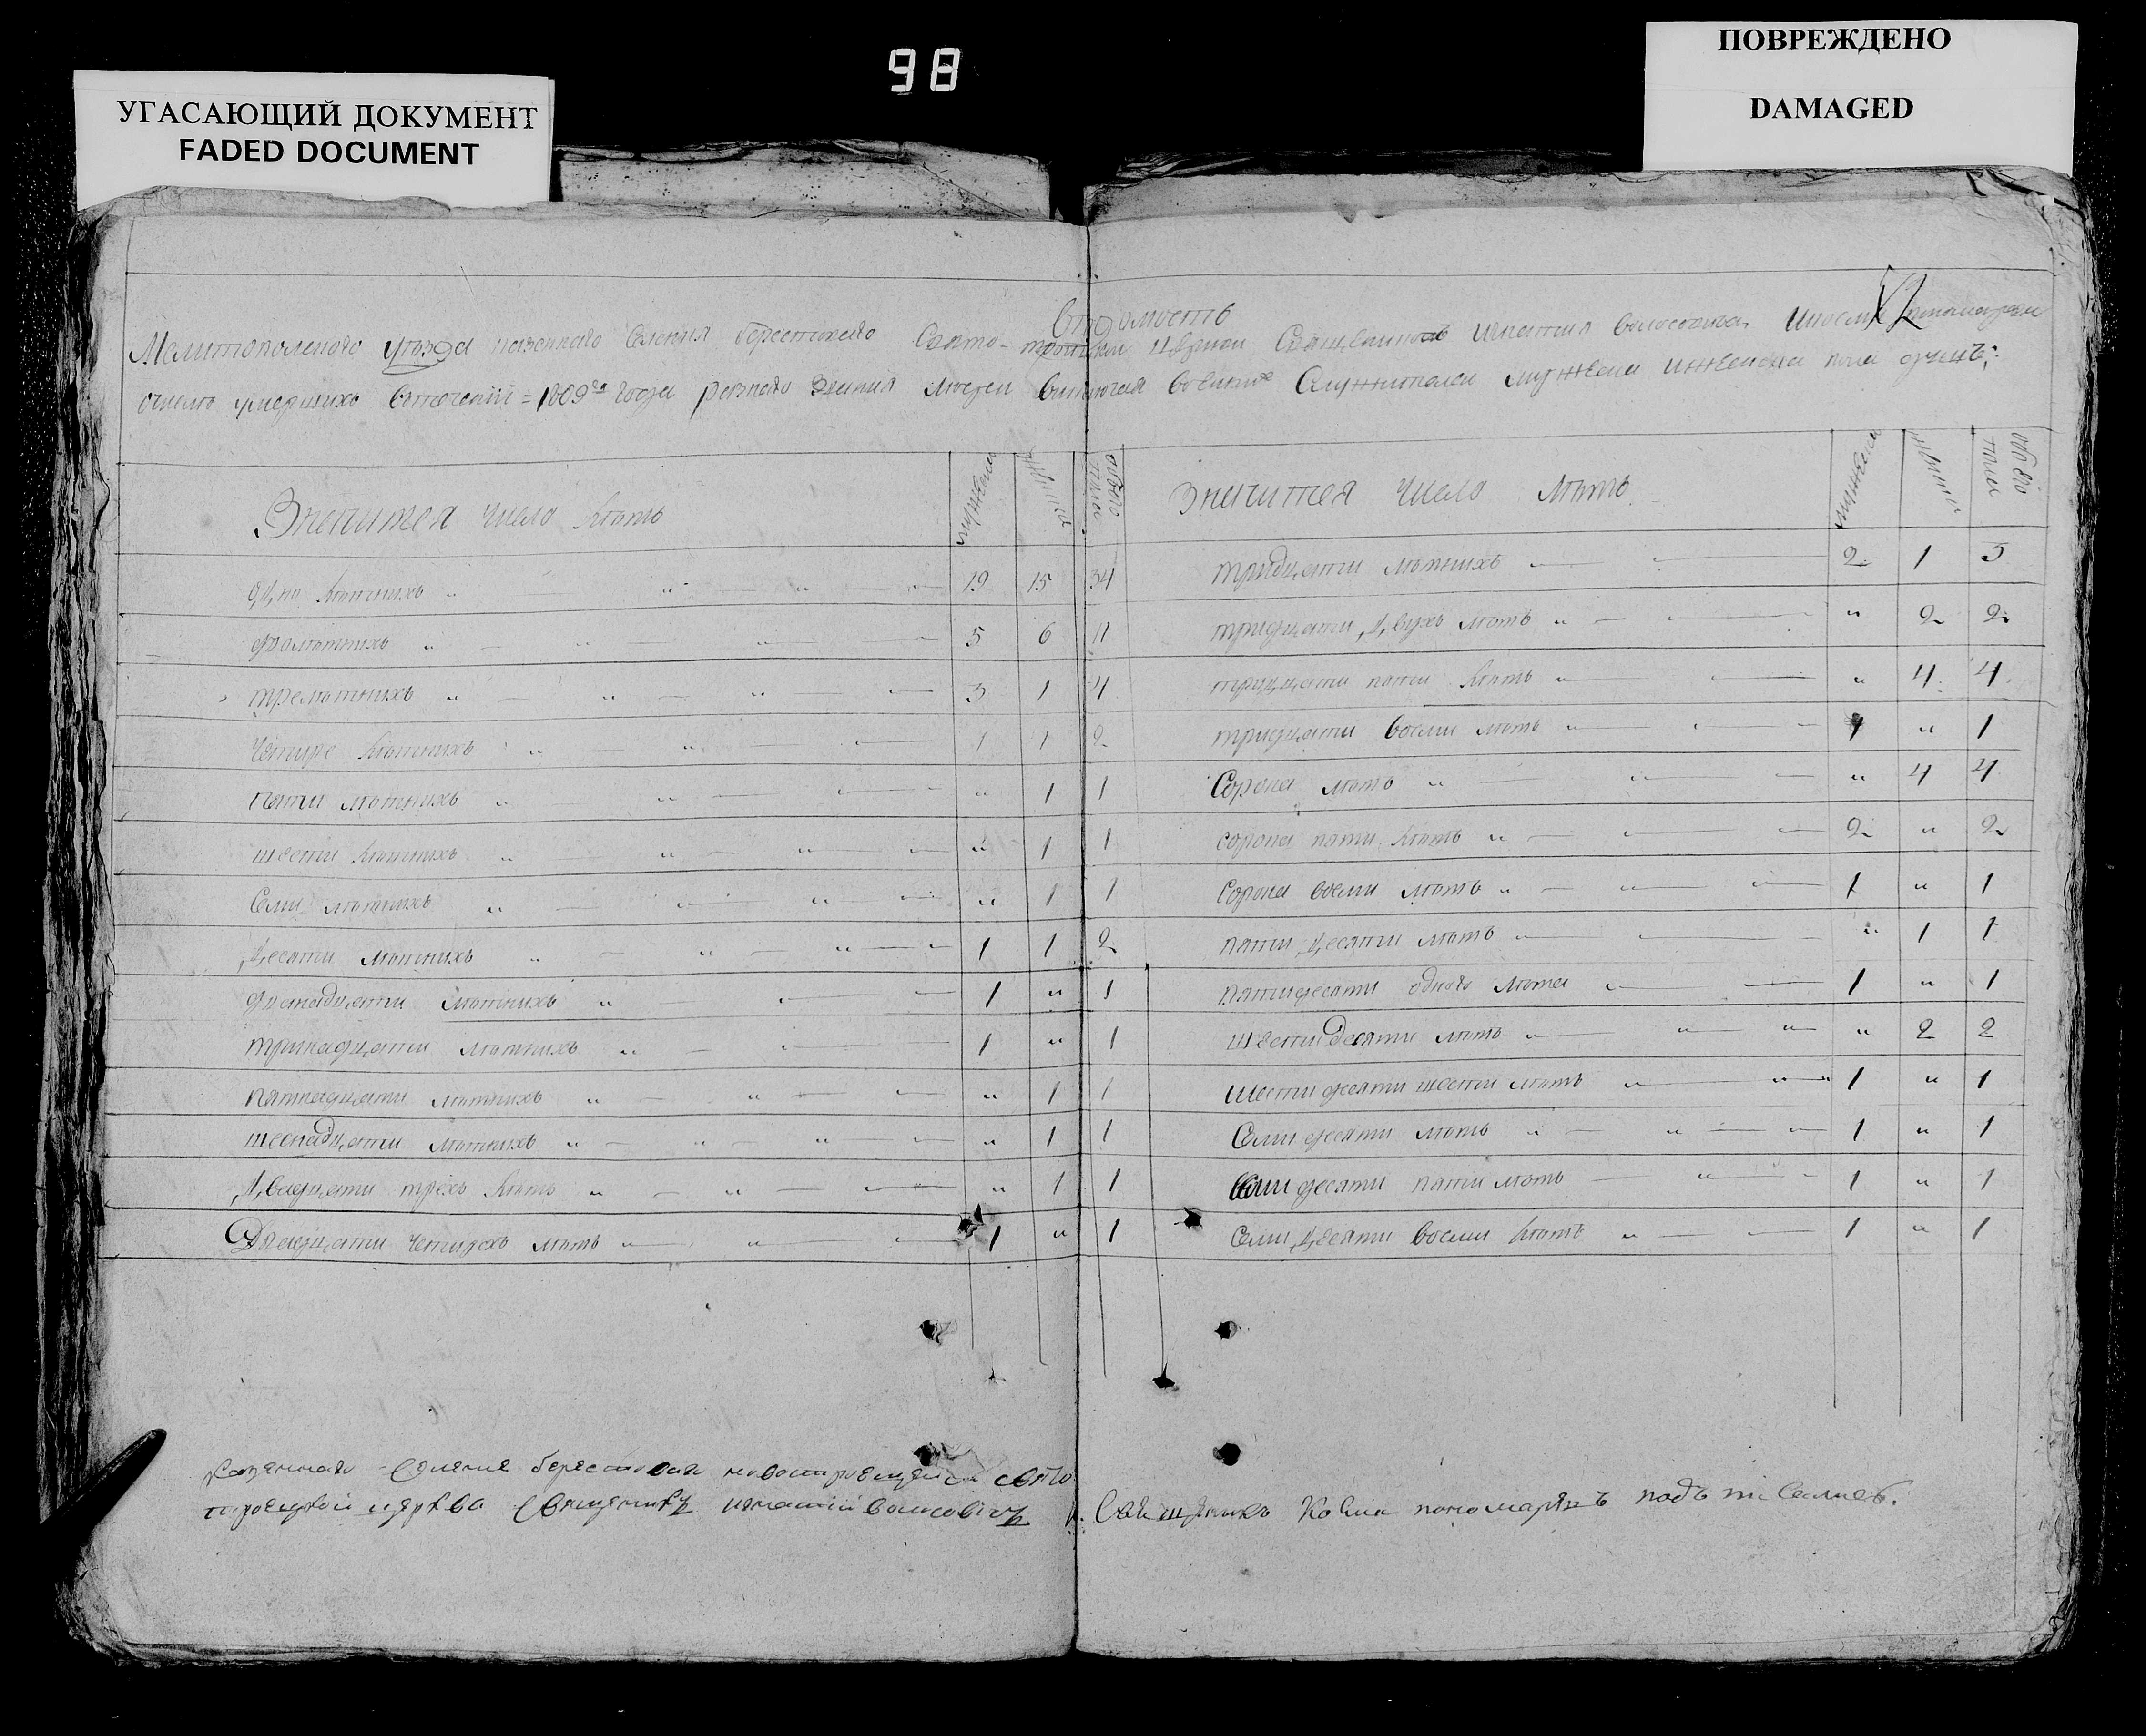 98
УГАСАЮЩИЙ ДОКУМЕНТ
FADED DOCUMENT
ПОВРЕЖДЕНО
DAMAGED
72
Вѣдомость
Мелитополского уѣзда казенного селения берестового Свято-троицкой церкви Священниковъ игнатия
очисле умершихъ втечении = 1809го года разного звания людей воинские служителеи мужеска иженска пола душъ:
Значится число лѣтъ мужеска женска обоего пола
одно лѣтнихъ „ 19 15 34
дволѣтнихъ „ 5 6 11
трелѣтнихъ „ 3 1 4
четире лѣтнихъ „ 1 1 2
пяти лѣтнихъ „ „ 1 1
шести лѣтнихъ „ „ 1 1
семи лѣтнихъ „ „ 1 1
десяти лѣтнихъ „ 1 1 2
двенадцати лѣтнихъ „ 1 „ 1
тринадцати лѣтнихъ „ 1 „ 1
пятнадцати лѣтнихъ „ „ 1 1
шеснадцати лѣтнихъ „ „ 1 1
двадцати трехъ лѣтъ „ „ 1 1
Двадцати четирехъ лѣтъ „ 1 „ 1
Значится число лѣтъ мужеска женска обоего пола
тридцати лѣтнихъ 2 1 3
тридцати двухъ лѣтъ „ „ 2 2
тридцати пяти лѣтъ „ „ 4 4
тридцати восми лѣтъ „ 1 „ 1
Сорока лѣтъ „ „ 4 4
сорока пяти лѣтъ „ 2 „ 2
сорока восми лѣтъ „ 1 „ 1
пяти десяти лѣтъ „ „ 1 1
пятидесяти одного лѣта 1 „ 1
шестидесяти лѣтъ „ „ 2 2
шестидесяти шести лѣтъ 1 „ 1
Семидесяти лѣтъ „ 1 „ 1
Семидесяти пяти лѣтъ 1 „ 1
Семидесяти восми лѣтъ „ 1 „ 1
казенного селения берестового свято
троецкой церкве Священникъ игнатий
Священникъ Козма пономаревъ